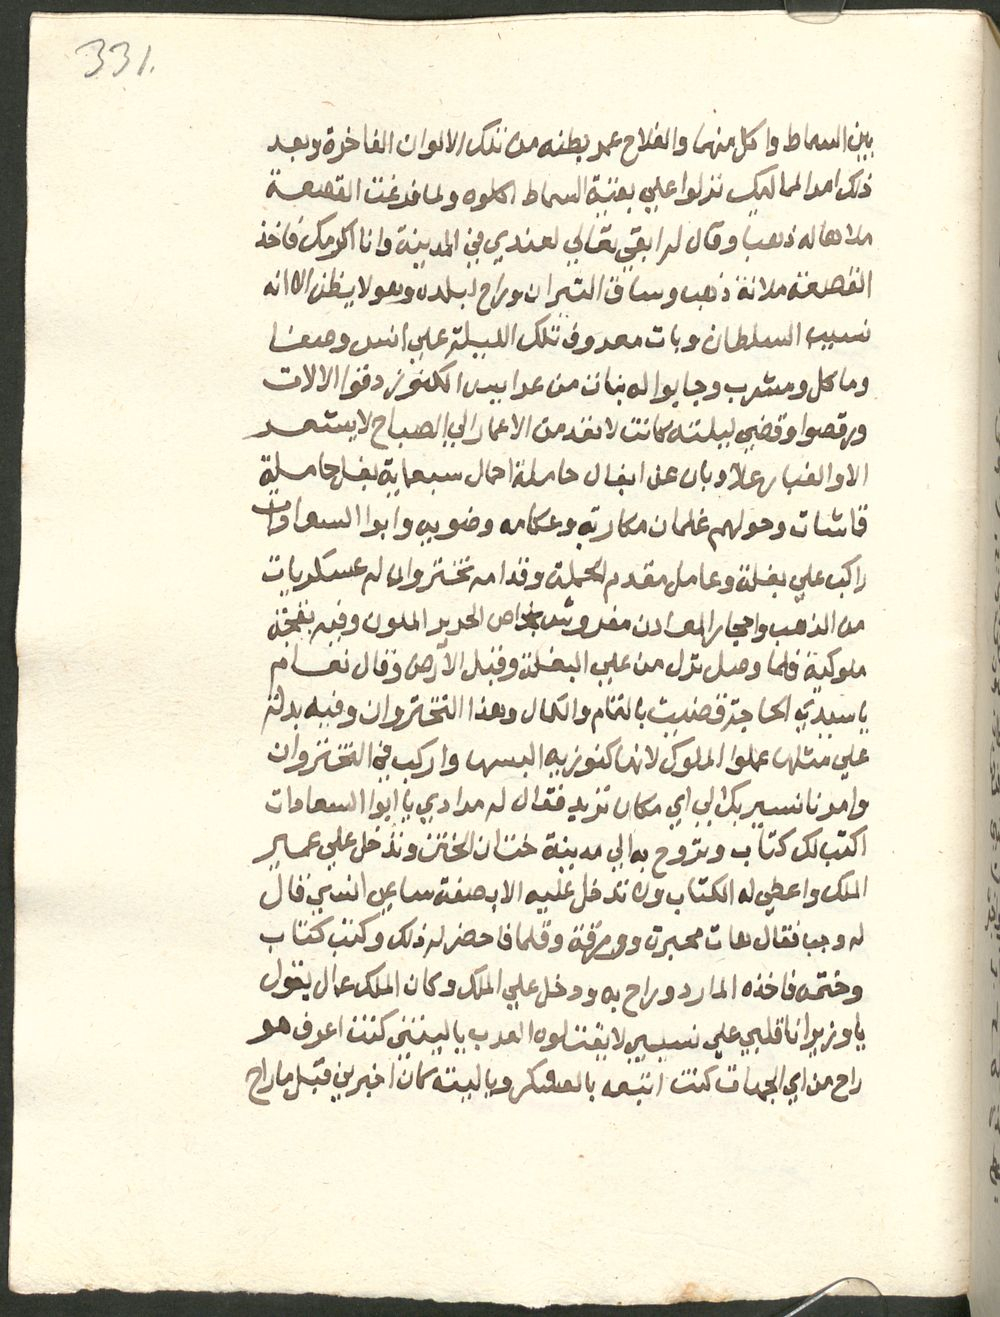 331.
بين السماط واكل منهما والفلاح عمر بطنه من تلك الالوان الفاخرة وبعد
ذلك امر المماليك نزلوا علي بقية السماط اكلوه ولما فرغت القصعة
ملاها له ذهبا وقال له ابقي تعالي لعندي في المدينة وانا اكرمك فاخذ
القصعة ملانة ذهب وساق التيران وراح لبلده وهو لا يظن الا انه
نسيب السلطان وبات معروف تلك الليلة علي انس وصفا
وماكل ومشرب وجابوا له بنات من عرايس الكنوز دقوا الالات
ورقصوا وقضي ليلته كانت لا تعد من الاعمار الي الصباح لا يشعر
الا والغبار علا وبان عن ابغال حاملة احمال سبعماية بغل حاملة
قماشات وحولهم غلمان مكاريه وعكامه وضويه وابوا السعادات
راكب علي بغلة وعامل مقدم الحملة وقدامه تختروان له عسكريات
من الذهب واحجار المعادن مفروش بخاص الحرير الملون وفيه بقجة
ملوكية فلما وصل نزل من علي البغلة وقبل الارض وقال نعام
يا سيدي الحاجة قضيت بالتمام والكمال وهذا التختروان وفيه بدلة
علي مثلها عملوا الملوك لانها كنوزيه البسها واركب في التختروان
وامرنا نسير بك الي اي مكان تريد فقال له مرادي يا ابوا السعادات
اكتب لك كتاب وتروح به الي مدينة ختان الختن وتدخل علي عمير
الملك واعطي له الكتاب ولا تدخل عليه الا بصفة ساعي انسي قال
له وجب فقال هات محبرة وورقة وقلما فاحضر له ذلك وكتب كتاب
وختمه فاخذه المارد وراح به ودخل علي الملك وكان الملك عمال يقول
يا وزير انا قلبي علي نسيبي لا يقتلوه العرب يا ليتني كنت اعرف هو
راح من اي الجهات كنت اتبعه بالعسكر ويا ليته كان اخبرني قبل ما راح